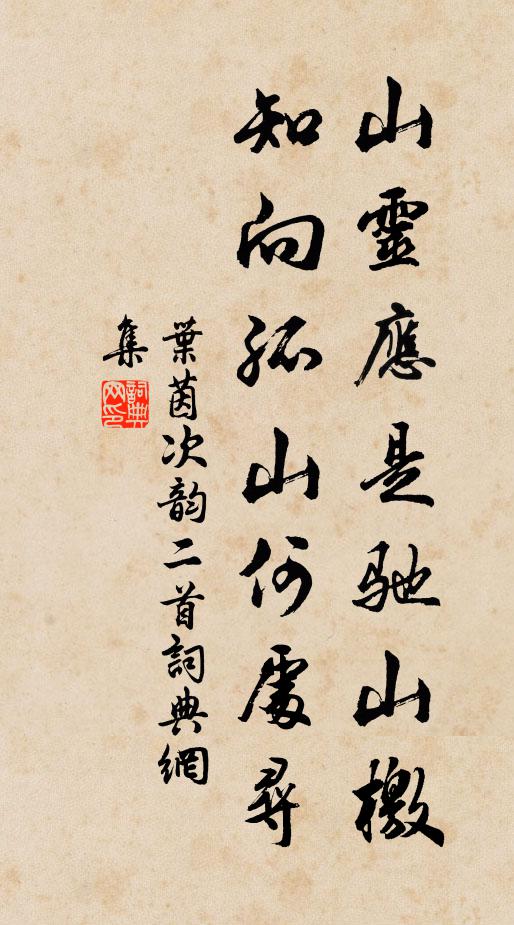 山靈應是馳山檄
知向孤山何處尋
葉茵次韵二首詞典網
集
詞典網印